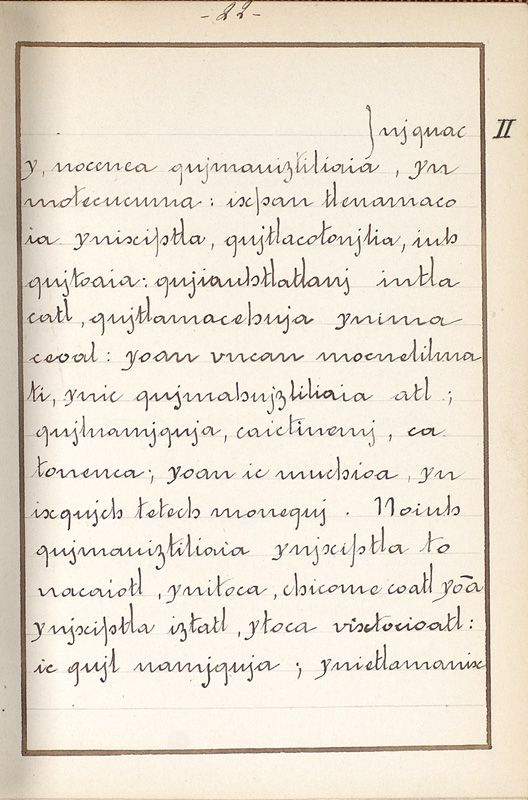 - 22 -
Jnjquac II
y, nocenca qujmauiztiliaia, yn
motecucuma: ixpan tlenamaco
ia ynixiptla, qujtlacotonjlia, iuh
qujtoaia: qujiauhtlatlanj intla
catl, qujtlamacehuja ynima
ceoal: yoan vncan mocnelilma
ti, ynic qujmahujztiliaia atl;
qujlnamjquja, caictinemj, ca
tonenca; yoan ic muchioa, yn
ixqujch tetech monequj. Noiuh
qujmauiztiliaia ynjxiptla to
nacaiotl, ynitoca, chicome coatl yoā
ynjxiptla iztatl, ytoca vixtocioatl:
ic qujl namjquja; ynictlamanix